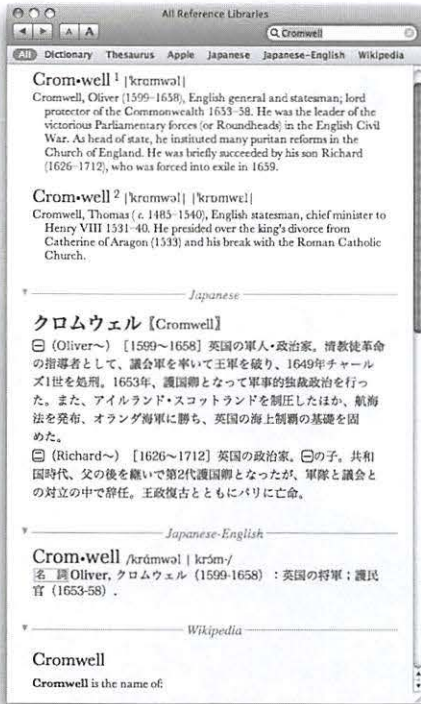 All Reference Libraries
A A Cromwell
All Dictionary Thesaurus Apple Japanese Japanese-English Wikipedia
Crom•well 1 |ˈkrɒmwəl|
Cromwell, Oliver (1599–1658), English general and statesman; lord
protector of the Commonwealth 1653–58. He was the leader of the
victorious Parliamentary forces (or Roundheads) in the English Civil
War. As head of state, he instituted many puritan reforms in the
Church of England. He was briefly succeeded by his son Richard
(1626–1712), who was forced into exile in 1659.
Crom•well 2 |ˈkrɒmwəl| |ˈkrɒmwɛl|
Cromwell, Thomas ( c. 1485–1540), English statesman, chief minister to
Henry VIII 1531–40. He presided over the king's divorce from
Catherine of Aragon (1533) and his break with the Roman Catholic
Church.
Japanese
クロムウェル【Cromwell】
㊀ (Oliver～) [1599～1658] 英国の軍人・政治家。清教徒革命
の指導者として、議会軍を率いて王軍を破り、1649年チャール
ズ1世を処刑。1653年、護国卿となって軍事的独裁政治を行っ
た。また、アイルランド・スコットランドを制圧したほか、航海
法を発布、オランダ海軍に勝ち、英国の海上制覇の基礎を固
めた。
㊁ (Richard～) [1626～1712] 英国の政治家。㊀の子。共和
国時代、父の後を継いで第2代護国卿となったが、軍隊と議会と
の対立の中で辞任。王政復古とともにパリに亡命。
Japanese-English
Crom•well /krɑ́mwəl | krɔ́m-/
名 詞 Oliver, クロムウェル (1599-1658) : 英国の将軍；護民
官 (1653-58) .
Wikipedia
Cromwell
Cromwell is the name of: